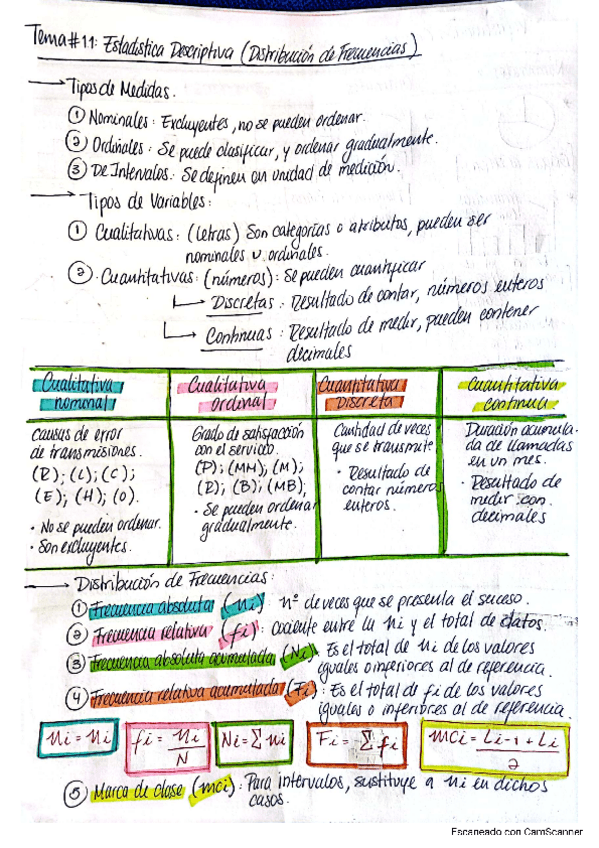 Tema #1.1: Estadística Descriptiva (Distribución de Frecuencias)
→ Tipos de Medidas.
① Nominales: Excluyentes, no se pueden ordenar.
② Ordinales: Se puede clasificar, y ordenar gradualmente.
③ De Intervalos: Se definen en unidad de medición.
→ Tipos de Variables:
① Cualitativas: (letras) Son categorías o atributos, pueden ser
nominales u ordinales.
② Cuantitativas: (números): Se pueden cuantificar
↳ Discretas: Resultado de contar, números enteros
↳ Continuas: Resultado de medir, pueden contener
decimales
Cualitativa
nominal
causas de error
de transmisiones.
(R); (L); (C);
(E); (H); (O).
• No se pueden ordenar.
• Son excluyentes.
Cualitativa
Ordinal
Grado de satisfacción
con el servicio.
(P); (MM); (M);
(R); (B); (MB);
• Se pueden ordenar
gradualmente.
Cuantitativa
Discreta
Cantidad de veces
que se transmite
• Resultado de
contar números
enteros.
Cuantitativa
continua
Duración acumula-
da de llamadas
en un mes.
• Resultado de
medir con
decimales
→ Distribución de Frecuencias:
① Frecuencia absoluta (ni): nº de veces que se presenta el suceso.
② Frecuencia relativa (fi): cociente entre la ni y el total de datos.
③ Frecuencia absoluta acumulada (Ni) Es el total de ni de los valores
iguales o inferiores al de referencia.
④ Frecuencia relativa acumulada (Fi): Es el total de fi de los valores
iguales o inferiores al de referencia.
ni = ni
fi = ni / N
Ni = Σ ni
Fi = Σ fi
mci = Li-1 + Li / 2
⑤ Marca de clase (mci): Para intervalos, sustituye a ni en dichos
casos.
Escaneado con CamScanner